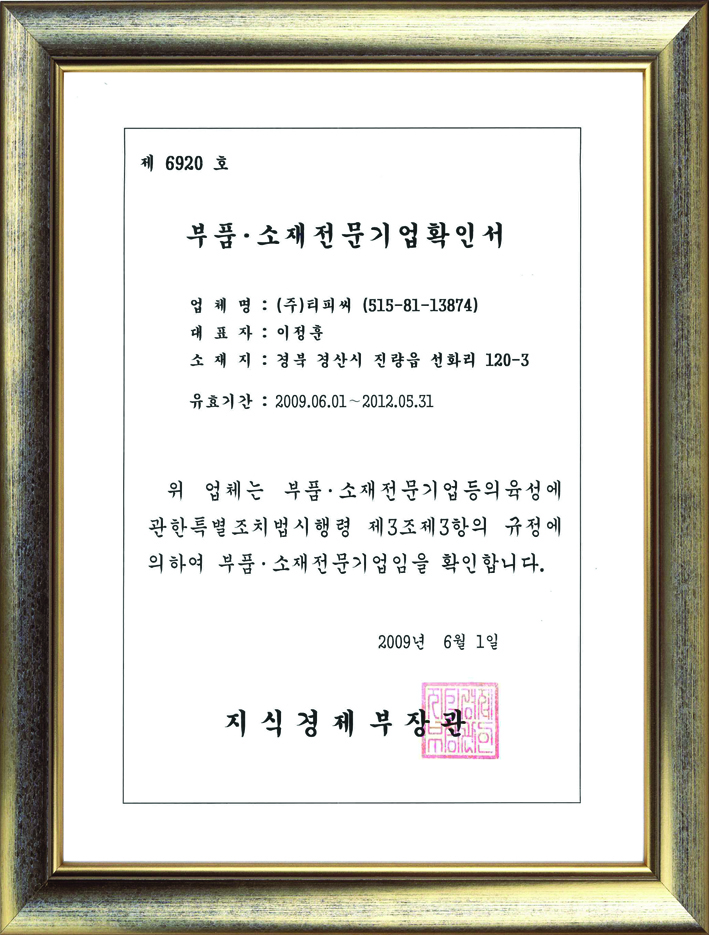 제 6920 호
부품·소재전문기업확인서
업 체 명 : (주)티피씨 (515-81-13874)
대 표 자 : 이정훈
소 재 지 : 경북 경산시 진량읍 선화리 120-3
유효기간 : 2009.06.01~2012.05.31
위 업체는 부품·소재전문기업등의육성에
관한특별조치법시행령 제3조제3항의 규정에
의하여 부품·소재전문기업임을 확인합니다.
2009년 6월 1일
지식경제부장관